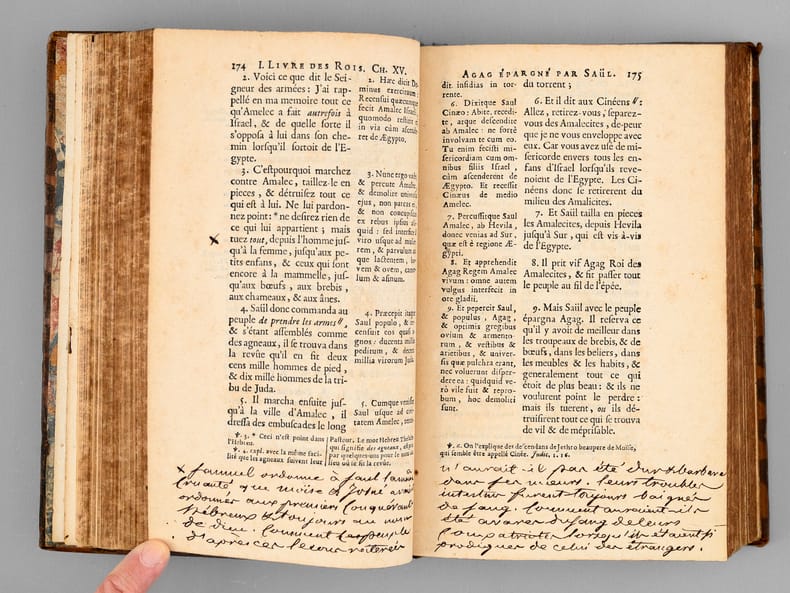 174 I. LIVRE DES ROIS. CH. XV.
2. Voici ce que dit le Sei-
gneur des armées : J'ai rap-
pellé en ma memoire tout ce
qu'Amelec a fait autrefois à
Israel, & de quelle forte il
s'opposa à lui dans son che-
min lorsqu'il sortoit de l'E-
gypte.
3. C'estpourquoi marchez
contre Amalec, taillez-le en
pieces, & détruisez tout ce
qui est à lui. Ne lui pardon-
nez point : * ne desirez rien de
ce qui lui appartient ; mais
tuez tout, depuis l'homme jus-
qu'à la femme, jusqu'aux pe-
tits enfans, & ceux qui sont
encore à la mammelle, jus-
qu'aux bœufs, aux brebis,
aux chameaux, & aux ânes.
4. Saül donc commanda au
peuple de prendre les armes ",
& s'étant assemblés comme
des agneaux, il se trouva dans
la revûe qu'il en fit deux
cens mille hommes de pied,
& dix mille hommes de la tri-
bu de Juda.
5. Il marcha ensuite jus-
qu'à la ville d'Amalec, il
dressa des embuscades le long
2. Hæc dicit Do
minus exercituum
Recensui quæcunque
fecit Amalec Israeli
quomodo restitit e
in via cùm ascende
ret de Ægypto.
3. Nunc ergo vade
& percute Amalec
& demolire universa
ejus, non parcas e
& non concupiscas
ex rebus ipsius ali
quid : sed interfice à
viro usque ad mulie
rem, & parvulum at
que lactentem, bo
vem & ovem, came
lum & asinum.
4. Præcepit itaque
Saul populo, & re
censuit eos quasi a
gnos : ducenta millia
peditum, & decem
millia virorum Juda.
5. Cumque venisset
Saul usque ad civi
tatem Amalec, teten
℣. 3. * Ceci n'est point dans
l'Hebreu.
℣. 4. expl. avec la même faci-
lité que les agneaux suivent leur
Pasteur. Le mot Hebreu
qui signifie des agneaux,
par quelques-uns pour le nom
lieu où se fit la revûe.
x Samuel ordonne à Saul la même
cruauté que moïse et Josué avoient
ordonnée aux premiers conquérants
hébreux & toujours au nom
de dieu. Comment le peuple
d'après ces leçons réitérées
AGAG ÉPARGNÉ PAR SAÜL. 175
dit insidias in tor-
rente.
6. Dixitque Saul
Cinæo : Abite, recedi-
te, atque descendite
ab Amalec : ne fortè
involvam te cum eo.
Tu enim fecisti mi-
sericordiam cum om-
nibus filiis Israel,
cùm ascenderent de
Ægypto. Et recessit
Cinæus de medio
Amelec.
7. Percussitque Saul
Amalec, ab Hevila,
donec venias ad Sur,
quæ est è regione Æ-
gypti.
8. Et apprehendit
Agag Regem Amalec
vivum : omne autem
vulgus interfecit in
ore gladii.
9. Et pepercit Saül,
& populus, Agag,
& optimis gregibus
ovium & armento-
rum, & vestibus &
arietibus, & univer-
sis quæ pulchra erant,
nec voluerunt disper-
dere ea : quidquid ve-
rò vile fuit & repro-
bum, hoc demoliti
sunt.
du torrent ;
6. Et il dit aux Cinéens " :
Allez, retirez-vous, separez-
vous des Amalecites, de-peur
que je ne vous enveloppe avec
eux. Car vous avez usé de mi-
sericorde envers tous les en-
fans d'Israel lorsqu'ils reve-
noient de l'Egypte. Les Ci-
néens donc se retirerent du
milieu des Amalicites.
7. Et Saül tailla en pieces
les Amalecites, depuis Hevila
jusqu'à Sur, qui est vis-à-vis
de l'Egypte.
8. Il prit vif Agag Roi des
Amalecites, & fit passer tout
le peuple au fil de l'épée.
9. Mais Saül avec le peuple
épargna Agag. Il reserva ce
qu'il y avoit de meilleur dans
les troupeaux de brebis, & de
bœufs, dans les beliers, dans
les meubles & les habits, &
generalement tout ce qui
étoit de plus beau : & ils ne
voulurent point le perdre :
mais ils tuerent, ou ils dé-
truisirent tout ce qui se trouva
de vil & de méprisable.
℣. 6. On l'explique des descendans de Jethro beaupere de Moïse,
qui semble être appellé Cinée. Judic. 1. 16.
n'aurait-il pas été dur & barbare
dans ses mœurs. leurs troubles
intestins furent toujours baignés
de sang. Comment auraient-ils
été avares du sang de leurs
compatriotes lorsqu'ils étaient si
prodigues de celui des étrangers.